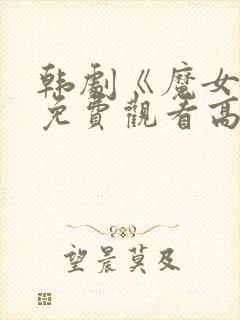 韩劇《魔女
免費觀看高
望晨莫及